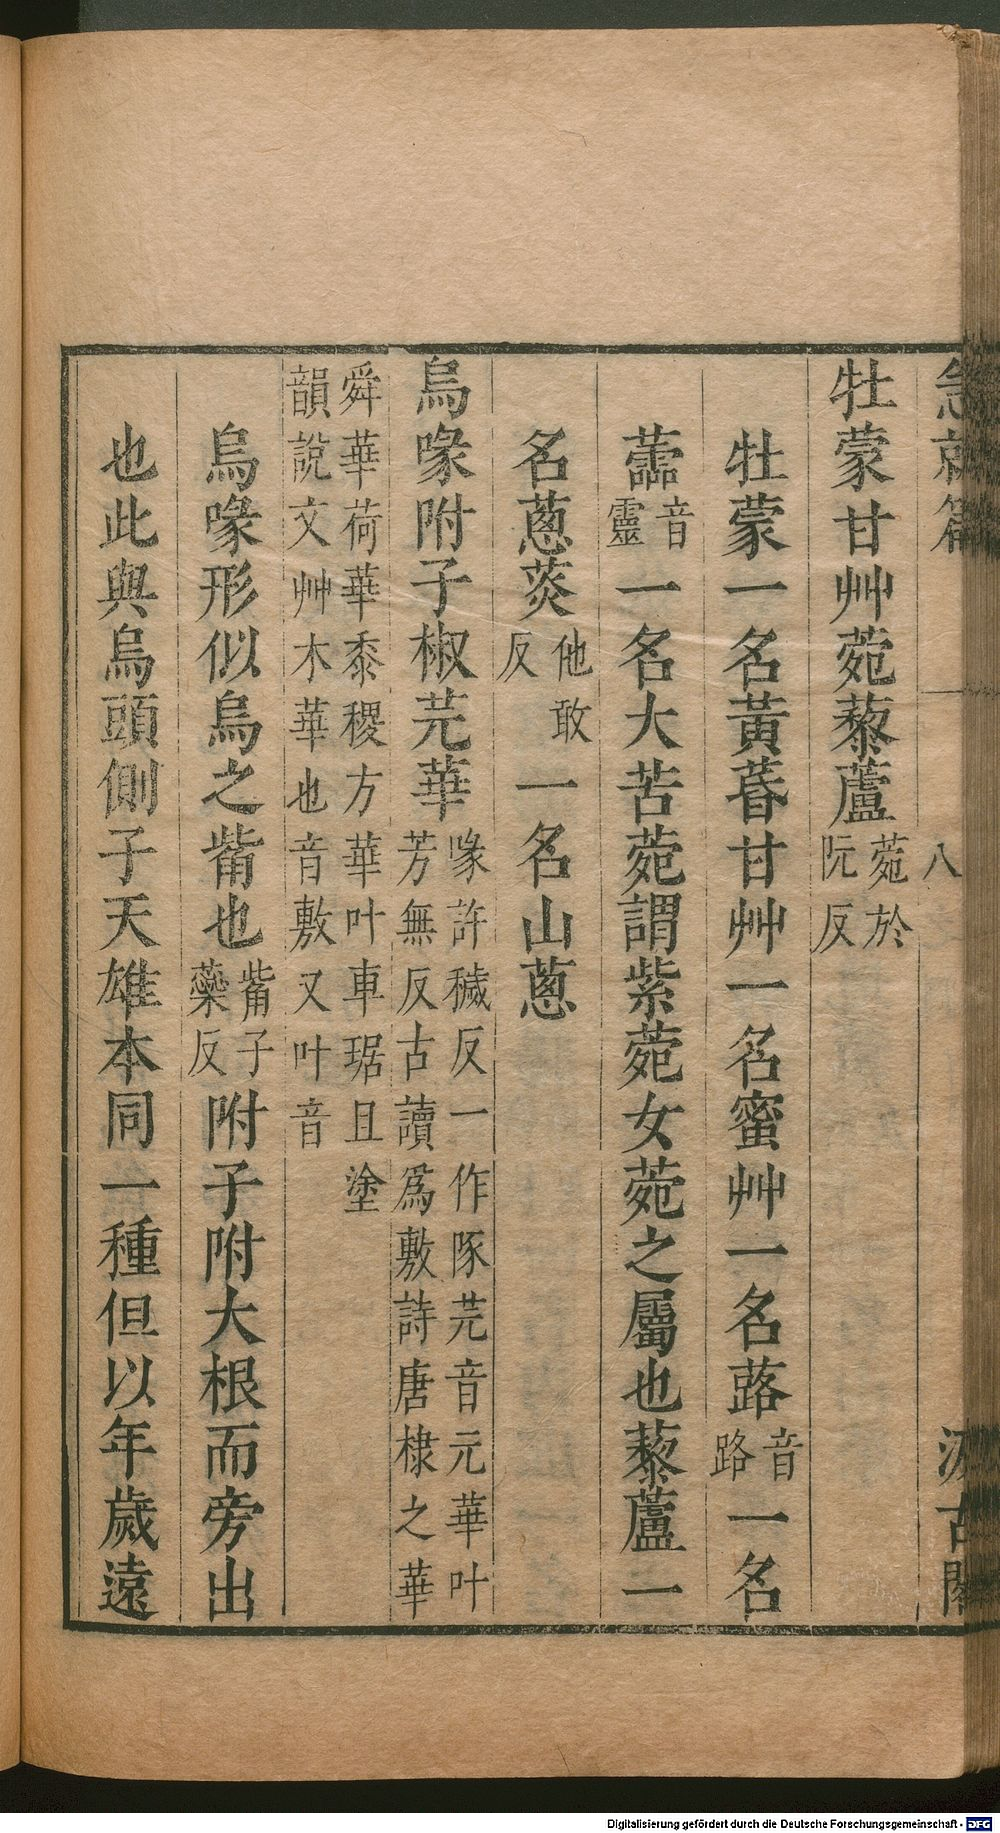 急就篇 八 汲古閣
牡蒙甘艸菀藜蘆菀於阮反
牡蒙一名黃昬甘艸一名蜜艸一名蕗音路一名
蘦音靈一名大苦菀謂紫菀女菀之屬也藜蘆一
名蔥菼他敢反一名山蔥
烏喙附子椒芫華喙許穢反一作㖨芫音元華叶芳無反古讀爲敷詩唐棣之華
舜華荷華黍稷方華叶車琚且塗韻說文艸木華也音敷又叶音
烏喙形似烏之觜也觜子蘂反附子附大根而旁出
也此與烏頭側子天雄本同一種但以年歲遠
Digitalisierung gefördert durch die Deutsche Forschungsgemeinschaft - DFG